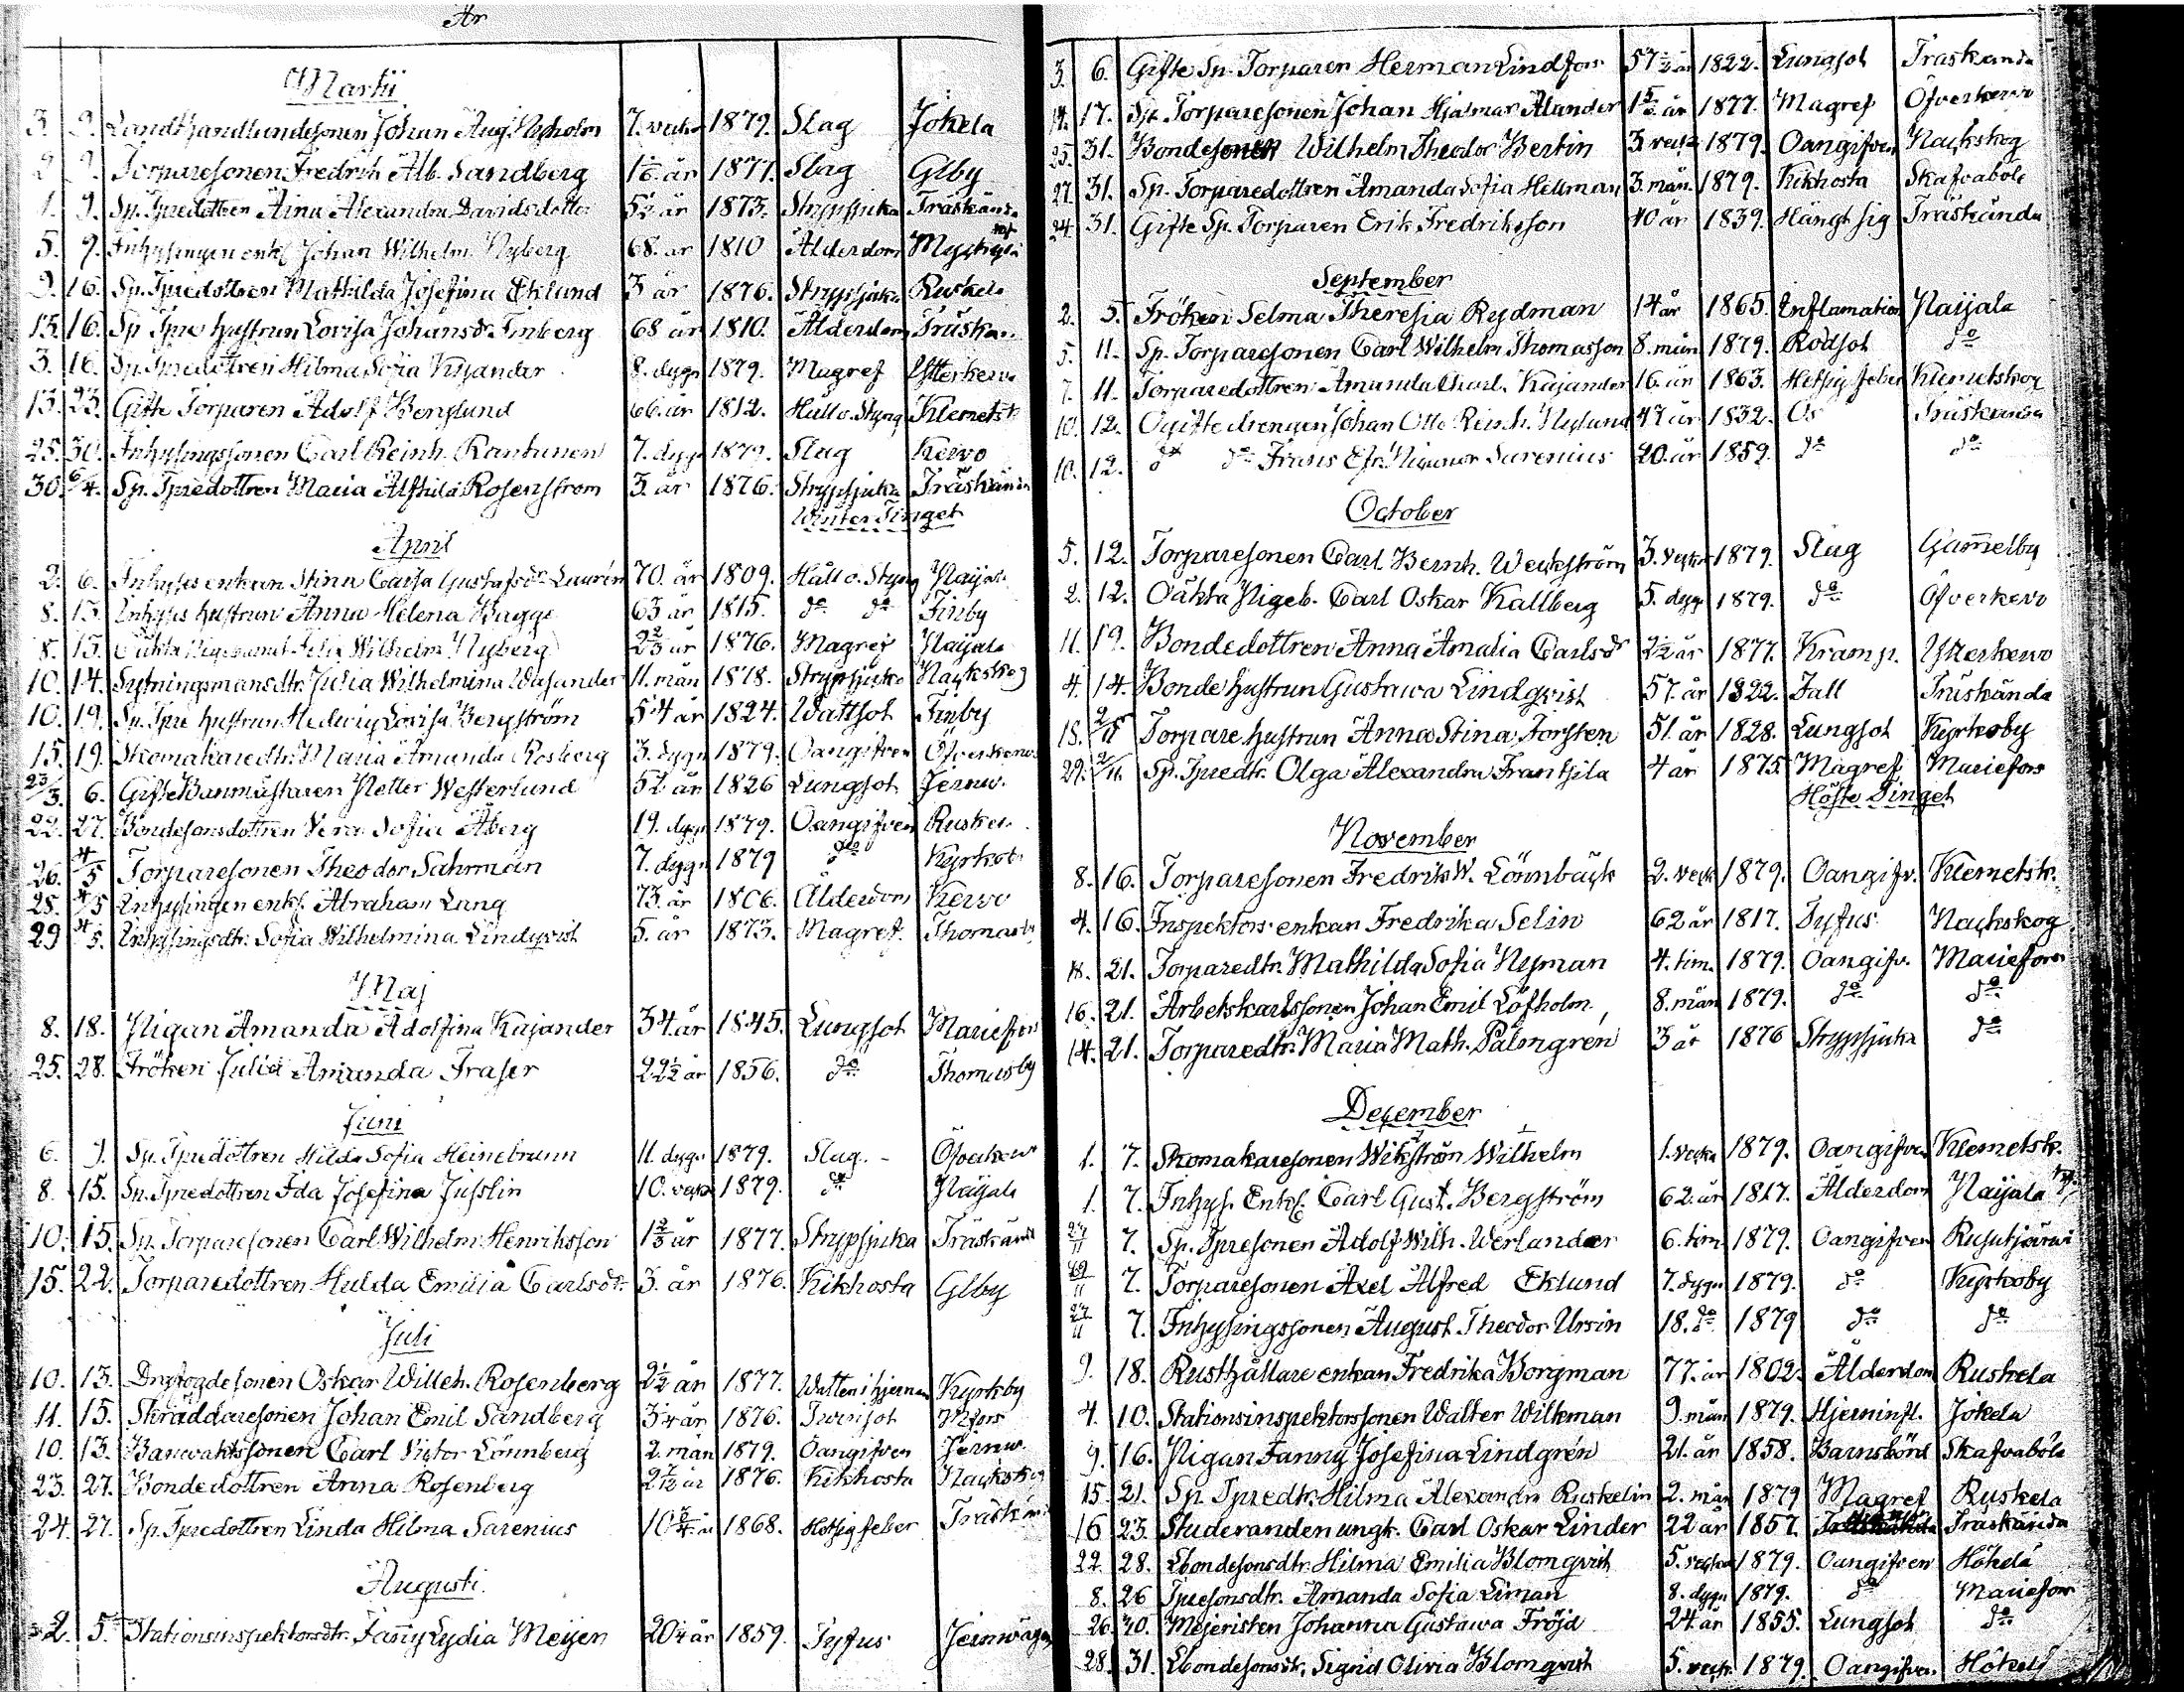 År
Martii
3. 9. Landthandlandesonen Johan Aug. Nyholm 7. veckor 1879. Slag Jokela
2 9. Torparesonen Fredrik Alb. Sandberg 1 år 1877. Slag Glby
1. 9. Sp. Tpredottren Aina Alexandra Davidsdotter 5½ år 1873. Strypsjuka Träskända
5. 9. Inhysingen enkl. Johan Wilhelm Nyberg 68. år 1810 Ålderdom
9. 16. Sp. Tpredottren Mathilda Josefina Eklund 3 år 1876. Strypsjuka Ruskela
15. 16. Sp Tpre hustrun Lovisa Johansdr Finberg 68 år 1810. Ålderdom Träskän.
3. 16. Sp. Tpredottren Hilma Sofia Kajander 8. dygn 1879. Magref Ytterkervo
13. 23. Gifte Torparen Adolf Berglund 66. år 1812. Håll o. Styng Klemetsk
25. 30. Inhysingssonen Carl Reinh. Rantanen 7. dygn 1879. Slag Kervo
30. 6/4. Sp. Tpredottren Maria Alfhild Rosenstrom 3. år 1876. Strypsjuka Träskända
Winter Tinget
April
2. 6. Inhyses enkan Stina Caisa Gustafsdr Laurén 70. år 1809. Håll o. Styng Naijala
8. 13. Inhyses hustrun Anna Helena Bagge 63 år 1815. do do Finby
8. 13. Oäkta Pigebarnet Felix Wilhelm Nyberg 2⅔ år 1876. Magref Naijala
10. 14. Sytningsmansdtr. Julia Wilhelmina Wasander 11. mån 1878. Strypsjuka Nackskog
10. 19. Sp. Tpre hustrun Hedwig Lovisa Bergström 54 år 1824. Wattsot Finby
15. 19. Skomakaredtr. Maria Amanda Rosberg 3. dygn 1879. Oangifven Öfverkervo
23/3. 6. Gifte Banmästaren Petter Westerlund 52 år 1826 Lungsot Jernv.
22. 27. Bondesonsdottren Vera Sofia Åberg 19. dygn 1879. Oangifven Ruskela
26. 4/5 Torparesonen Theodor Sahrman 7. dygn 1879 do Kyrkob.
28. 4/5 Inhysingen enkl. Abraham Lang 73. år 1806. Ålderdom Kervo
29 4/5. Inhysingsdtr. Sofia Wilhelmina Lindqvist 5. år 1873. Magref. Thomasby
Maj
8. 18. Pigan Amanda Adolfina Kajander 34. år 1845. Lungsot Mariefors
25. 28. Fröken Julia Amanda Fraser 22½ år 1856. do Thomasby
Juni
6. 9. Sp. Tpredottren Hilda Sofia Heinebrunn 11. dygn 1879. Slag. Öfverkervo
8. 15. Sp. Tpredottren Ida Josefina Jusslin 10. veck 1879. do Naijala
10. 15. Sp. Torparesonen Carl Wilhelm Henriksson 1⅔ år 1877. Strypsjuka Träskända
15. 22. Torparedottren Hulda Emilia Carlsdr. 3. år 1876. Kikhosta Glby
Juli
10. 13. Drgfogdesonen Oskar Willeh. Rosenberg 2½ år 1877. Watten i hjernan Kyrkby
11. 15. Skräddaresonen Johan Emil Sandberg 3¼ år 1876. Mfors
10. 13. Banvaktssonen Carl Victor Lönnberg 2. mån 1879. Oangifven Jernv.
23. 27. Bondedottren Anna Rosenberg 2½ år 1876. Kikhosta Nackskog
24. 27. Sp. Tpredottren Linda Hilma Sarenius 10¾ år 1868. Hetsig feber Träskända
Augusti.
2. 5. Stationsinspektorsdtr. Fanny Lydia Meijen 20¼ år 1859. Tyfus Jernvägen
3. 6. Gifte Sp. Torparen Herman Lindfors 57½ år 1822. Lungsot Träskända
14. 17. Sp. Torparesonen Johan Hjalmar Alander 1 år 1877. Magref Öfverkervo
25. 31. Bondesonen Wilhelm Theodor Bertin 3 veckor 1879. Oangifven Nackskog
27. 31. Sp. Torparedottren Amanda Sofia Hellman 3. mån. 1879. Kikhosta Skafvaböle
24. 31. Gifte Sp. Torparen Erik Fredriksson 40 år 1839. Hängt sig Träskända
September
2. 5. Fröken Selma Theresia Rydman 14 år 1865. Inflamation Naijala
5. 11. Sp. Torparesonen Carl Wilhelm Thomasson 8. mån 1879. Rödsot do
7. 11. Torparedottren Amanda Charl. Kajander 16. år 1863. Hetsig feber Klemetskog
10. 12. Ogifte drengen Johan Otto Reinh. Nylund 47 år 1832. Os Träskända
10. 12. do do Frans Efr. Nicanor Sarenius 20. år 1859. do do
October
5. 12. Torparesonen Carl Bernh. Weckström 3. veckor 1879. Slag Gammelby
2. 12. Oäkta Pigeb. Carl Oskar Kallberg 5. dygn 1879. do Öfverkervo
11. 19. Bondedottren Anna Amalia Carlsdr 2½ år 1877. Kramp. Ytterkervo
4. 14. Bonde hustrun Gustawa Lindqvist 57. år 1822. Fall Träskända
18. 2/11 Torpare hustrun Anna Stina Forsten 51. år 1828. Lungsot Kyrkoby
29. 2/11. Sp. Tpredtr. Olga Alexandra Frantsila 4 år 1875. Magref Mariefors
Höste Tinget
November
8. 16. Torparesonen Fredrik W. Lönnbäck 2. veck 1879. Oangifv. Klemetsk.
4. 16. Inspektors enkan Fredrika Selin 62 år 1817. Tyfus Nackskog
18. 21. Torparedtr. Mathilda Sofia Nyman 4. tim. 1879. Oangifv. Mariefors
16. 21. Arbetskarlssonen Johan Emil Löfholm, 8. mån 1879. do do
14. 21. Torparedtr. Maria Math. Palmgrén 3 år 1876 Strypsjuka do
December
1. 7. Skomakaresonen Wikström Wilhelm 1. vecka 1879. Oangifven Klemetsk.
1. 7. Inhys. Enkl. Carl Gust. Bergström 62. år 1817. Ålderdom Naijala
27/11 7. Sp. Tpresonen Adolf Wilh. Werlander 6. tim 1879. Oangifven Rusutjärwi
29/11 7. Torparesonen Axel Alfred Eklund 7. dygn 1879. do Kyrkoby
27/11 7. Inhysingssonen August Theodor Ursin 18. do 1879 do do
9. 18. Rusthållare enkan Fredrika Borgman 77. år 1802. Ålderdom Ruskela
4. 10. Stationsinspektorssonen Walter Wilkman 9. mån 1879. Hjerninfl. Jokela
9. 16. Pigan Fanny Josefina Lindgrén 21. år 1858. Barnsbörd Skafvaböle
15. 21. Sp. Tpredtr. Hilma Alexandra Ruskelin 2. mån 1879 Magref Ruskela
16 23. Studeranden ungk. Carl Oskar Linder 22 år 1857. Träskända
22. 28. Lbondesonsdtr. Hilma Emilia Blomqvist 5. veckor 1879. Oangifven Hökelä
8. 26 Tpresonsdtr. Amanda Sofia Liman 8. dygn 1879. do Mariefors
26. 30. Mejeristen Johanna Gustawa Fröjd 24. år 1855. Lungsot do
28. 31. Lbondesonsdr. Sigrid Olivia Blomqvist 5. veckr. 1879. Oangifven. Hökelä